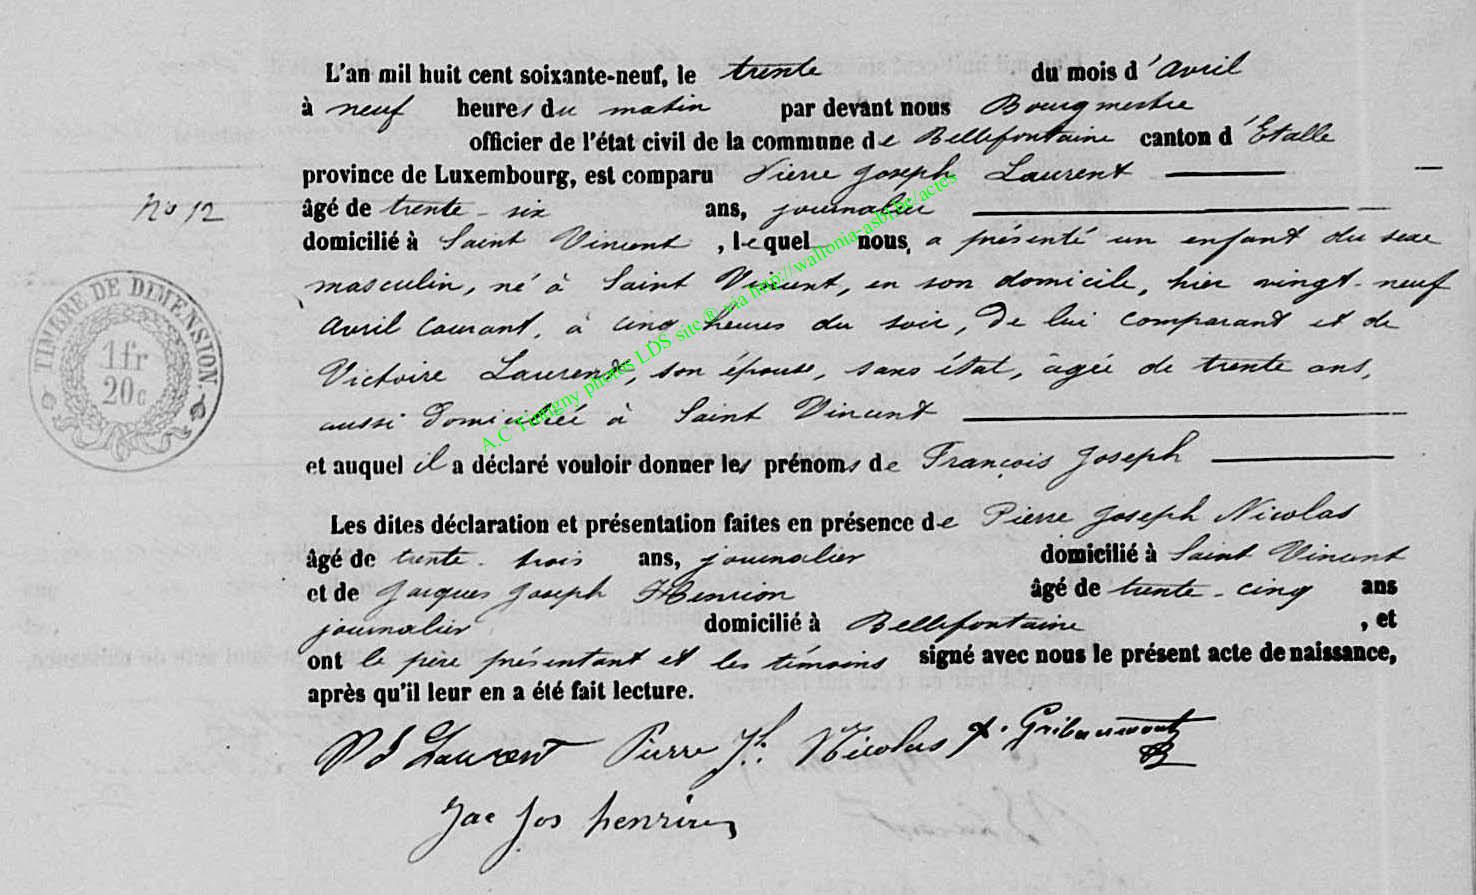 L'an mil huit cent soixante-neuf, le trente du mois d'Avril
à neuf heures du matin par devant nous Bourgmestre
officier de l'état civil de la commune de Bellefontaine canton d'Etalle
province de Luxembourg, est comparu Pierre Joseph Laurent
No 12
âgé de trente-six ans, journalier
domicilié à Saint Vincent, lequel nous, a présenté un enfant du sexe
masculin, né à Saint Vincent, en son domicile, hier vingt-neuf
Avril courant, à cinq heures du soir, De lui comparant et de
Victoire Laurent, son épouse, sans état, âgée de trente ans,
aussi Domiciliée à Saint Vincent
et auquel il a déclaré vouloir donner les prénoms de François Joseph
Les dites déclaration et présentation faites en présence de Pierre Joseph Nicolas
âgé de trente-trois ans, journalier domicilié à Saint Vincent
et de Jacques Joseph Henrion âgé de trente-cinq ans
journalier domicilié à Bellefontaine, et
ont le père présentant et les témoins signé avec nous le présent acte de naissance,
après qu'il leur en a été fait lecture.
P J Laurent Pierre Jh. Nicolas
Jac Jos henrion
TIMBRE DE DIMENSION.
1fr
20c
A.C Tintigny photos LDS site ® via http://wallonia-asbl.be/actes